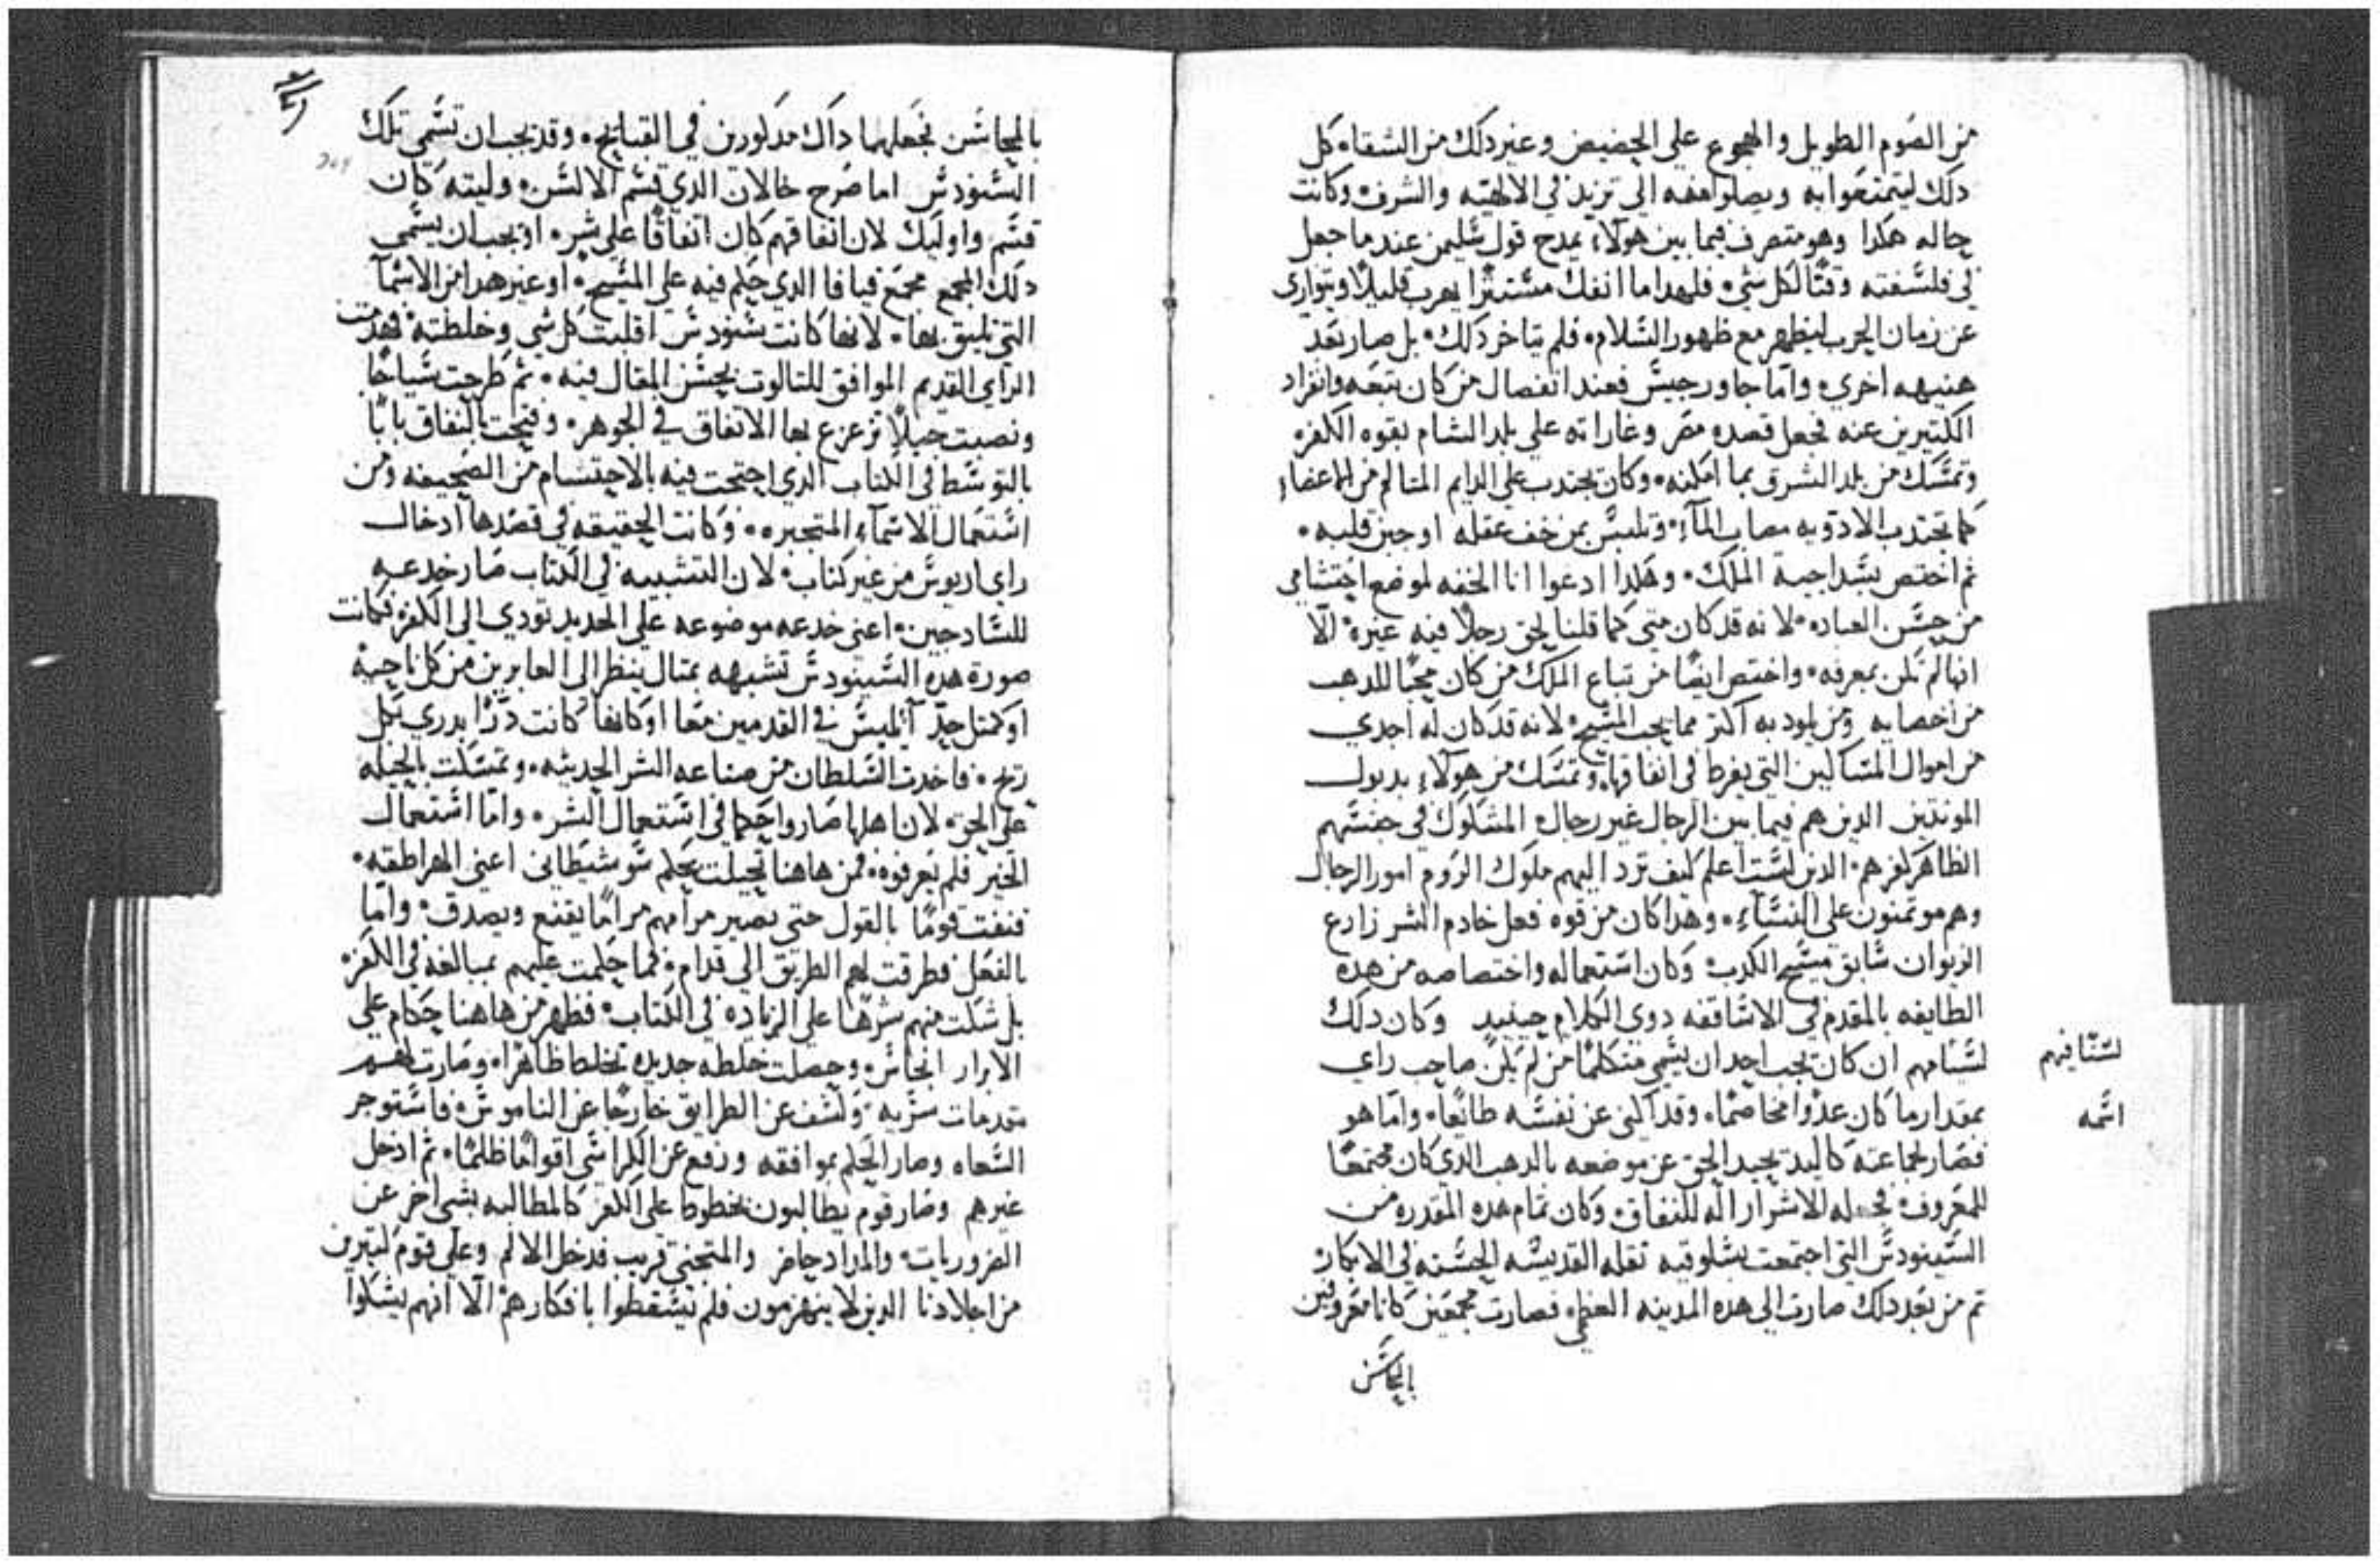 من الصوم الطويل والهجوع علي الحضيض وغير دلك من الشقاء كل
دلك ليتمتعوا به ويصلوا معه الي تزيد في الالهيه والشرف وكانت
حاله هكدا وهو متصرف فيما بين هولاء يمدح قول سليمن عندما جعل
في فلسفته وقتًا لكل شيء فلهدا ما انفك مستترًا يهرب قليلًا ويتواري
عن زمان الحرب ليظهر مع ظهور السلام فلم يتاخر دلك بل صار بعد
هنيهه اخري واما جاورجيس فعند انفصال من كان يتبعه وانفراد
الكتيرين عنه فجعل قصده مصر وغاراته علي بلد الشام بقوه الكفر
وتمسك من بلد الشرق بما امكنه وكان يجتدب علي الدايم المتالم من الاعضاء
كما تجتدب الادويه مصاب الماء وتلبس بمن خف عقله او جبن قلبه
ثم اختص بسداجة الملك وهكدا ادعوا انا الخفه لموضع احتشامي
من حسن العباده لانه قد كان متي كما قلنا لحق رجلًا فيه غيرة الا
انها لم تكن بمعرفه واختص ايضًا من تباع الملك من كان محبًا للدهب
من اخصايه ومن يلود به اكتر مما يحب المسيح لانه قد كان له اجدي
من اموال المساكين التي يفرط في انفاقها وتمسك من هولاء بدبول
المونتين الدين هم فيما بين الرجال غير رجال المشكوك في جنسهم
الظاهر كفرهم الدين لست اعلم كيف ترد اليهم ملوك الروم امور الرجال
وهم موتمنون علي النساء وهدا كان من قوه فعل خادم الشر زارع
الزيوان سابق مسيح الكدب وكان استعماله واختصاصه من هده
الطايفه بالمقدم في الاساقفه دوي الكلام حينيد وكان دلك
لسانهم ان كان يجب احد ان يسمي متكلمًا من لم يكن صاحب راي
لسنافيهم
بمقدار ما كان عدوًا مخاصمًا وقد اكني عن نفسه طايعًا واما هو
اسمه
فصار لجماعته كاليد يحيد الحق عن موضعه بالدهب الدي كان مجتمعًا
للمعروف فجعله للاشرار اله للنفاق وكان تمام هده المقدره من
السينودس التي اجتمعت بسلوقيه تقله القديسه الحسنه في الابكار
تم من بعد دلك صارت الي هده المدينه العظمي فصارت مجمعين كانا معروفين
بالمحاسن
بالمحاسن فجعلهما داك مدكورين في القبايح وقد يجب ان تسمي تلك
السنودس اما صرح خالان الدي قسم الالسن وليته كان
قسم واوليك لان اتفاقهم كان اتفاقًا علي شر او يجب ان يسمي
دلك المجمع مجمع قيافا الدي حكم فيه علي المسيح او غير هدا من الاسماء
التي تليق بها لانها كانت سنودس اقلبت كل شي وخلطته فهدمت
الراي القديم الموافق للتالوت بحسن المقال فيه ثم طرحت سياجًا
ونصبت حيلًا تزعزع بها الاتفاق في الجوهر وفتحت بالنفاق بابًا
بالتوسط في الكتاب الدي احتجت فيه بالاحتشام من الصحيفه ومن
استعمال الاسماء المتحيره وكانت الحقيقه في قصدها ادخال
راي اريوس من غير كتاب لان التشبيه في الكتاب صار خدعه
للسادجين اعني خدعه موضوعه علي الحديد تودي الي الكفر فكانت
صورة هده السينودس تشبهه بمتال ينظر الي العابرين من كل ناحيه
او كمتل حد الميس في القدمين معًا او كانها كانت درًا يدري بكل
ريح فاخدت السلطان من صناعه الشر الحديثه وتمسكت بالحيله
علي الحق لان اهلها صاروا حكما في استعمال الشر واما استعمال
الخير فلم يعرفوه فمن هاهنا تحيلت بحكم سو شيطاني اعني الهراطقه
فنفت قومًا بالقول حتي يصير مرامهم مرامًا يقنع ويصدق واما
بالفعل فطرقت لهم الطريق الي قدام فما حكمت عليهم بمبالغه في الكفر
بل شكت منهم شرهًا علي الزياده في الكتاب فظهر من هاهنا حكام علي
الابرار انجاس وحصلت خلطه جديده تخلط ظاهرًا وصارت لهم
متقدمات سريه وكشف عن الطرايق خارجًا عن الناموس فاستوجر
السعاه وصار الحكم بموافقه ورفع عن الكراسي اقوامًا ظلمًا ثم ادخل
غيرهم وصار قوم يطالبون بخطوط علي الكفر كالمطالبه بشي اخر عن
الضروريات والمداد حاضر والمتجني قريب فدخل الالم وعلي قوم كتيرين
من اجلادنا الدين لا ينهزمون فلم يسقطوا بافكارهم الا انهم يشكوا